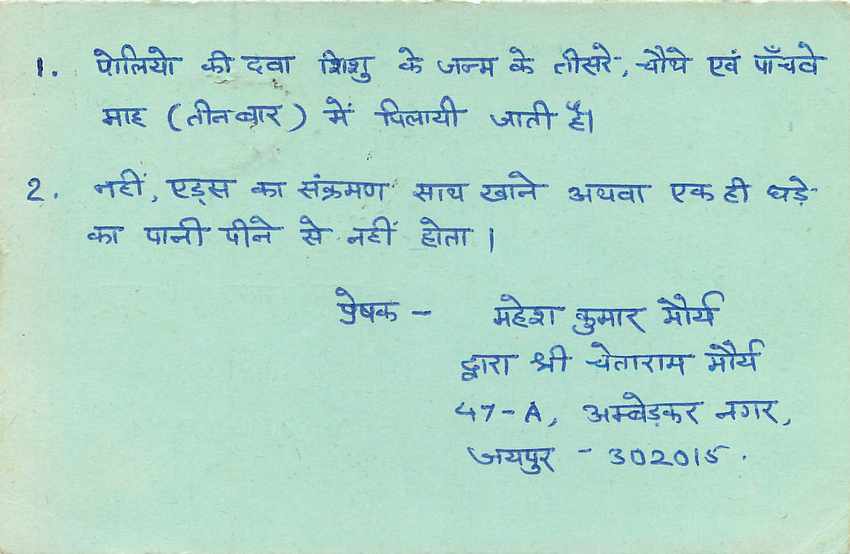 1. पोलियो की दवा शिशु के जन्म के तीसरे, चौथे एवं पाँचवे
माह (तीन बार) में पिलायी जाती है।
2. नहीं, एड्स का संक्रमण साथ खाने अथवा एक ही घड़े
का पानी पीने से नहीं होता।
प्रेषक - महेश कुमार मौर्य
द्वारा श्री चेताराम मौर्य
47-A, अम्बेड़कर नगर,
जयपुर - 302015.